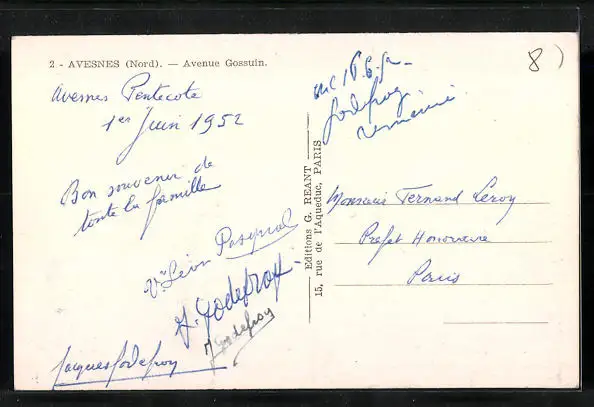 2 - AVESNES (Nord). — Avenue Gossuin.
Avesnes Pentecote
1er Juin 1952
Bon souvenir de
toute la famille
Vve Léon Pasqual
J. Godefroy
J Godefroy
Jacques Godefroy
Editions G. REANT
15, rue de l'Aqueduc, PARIS
Godefroy
8
Monsieur Fernand Leroy
Prefet Honoraire
Paris